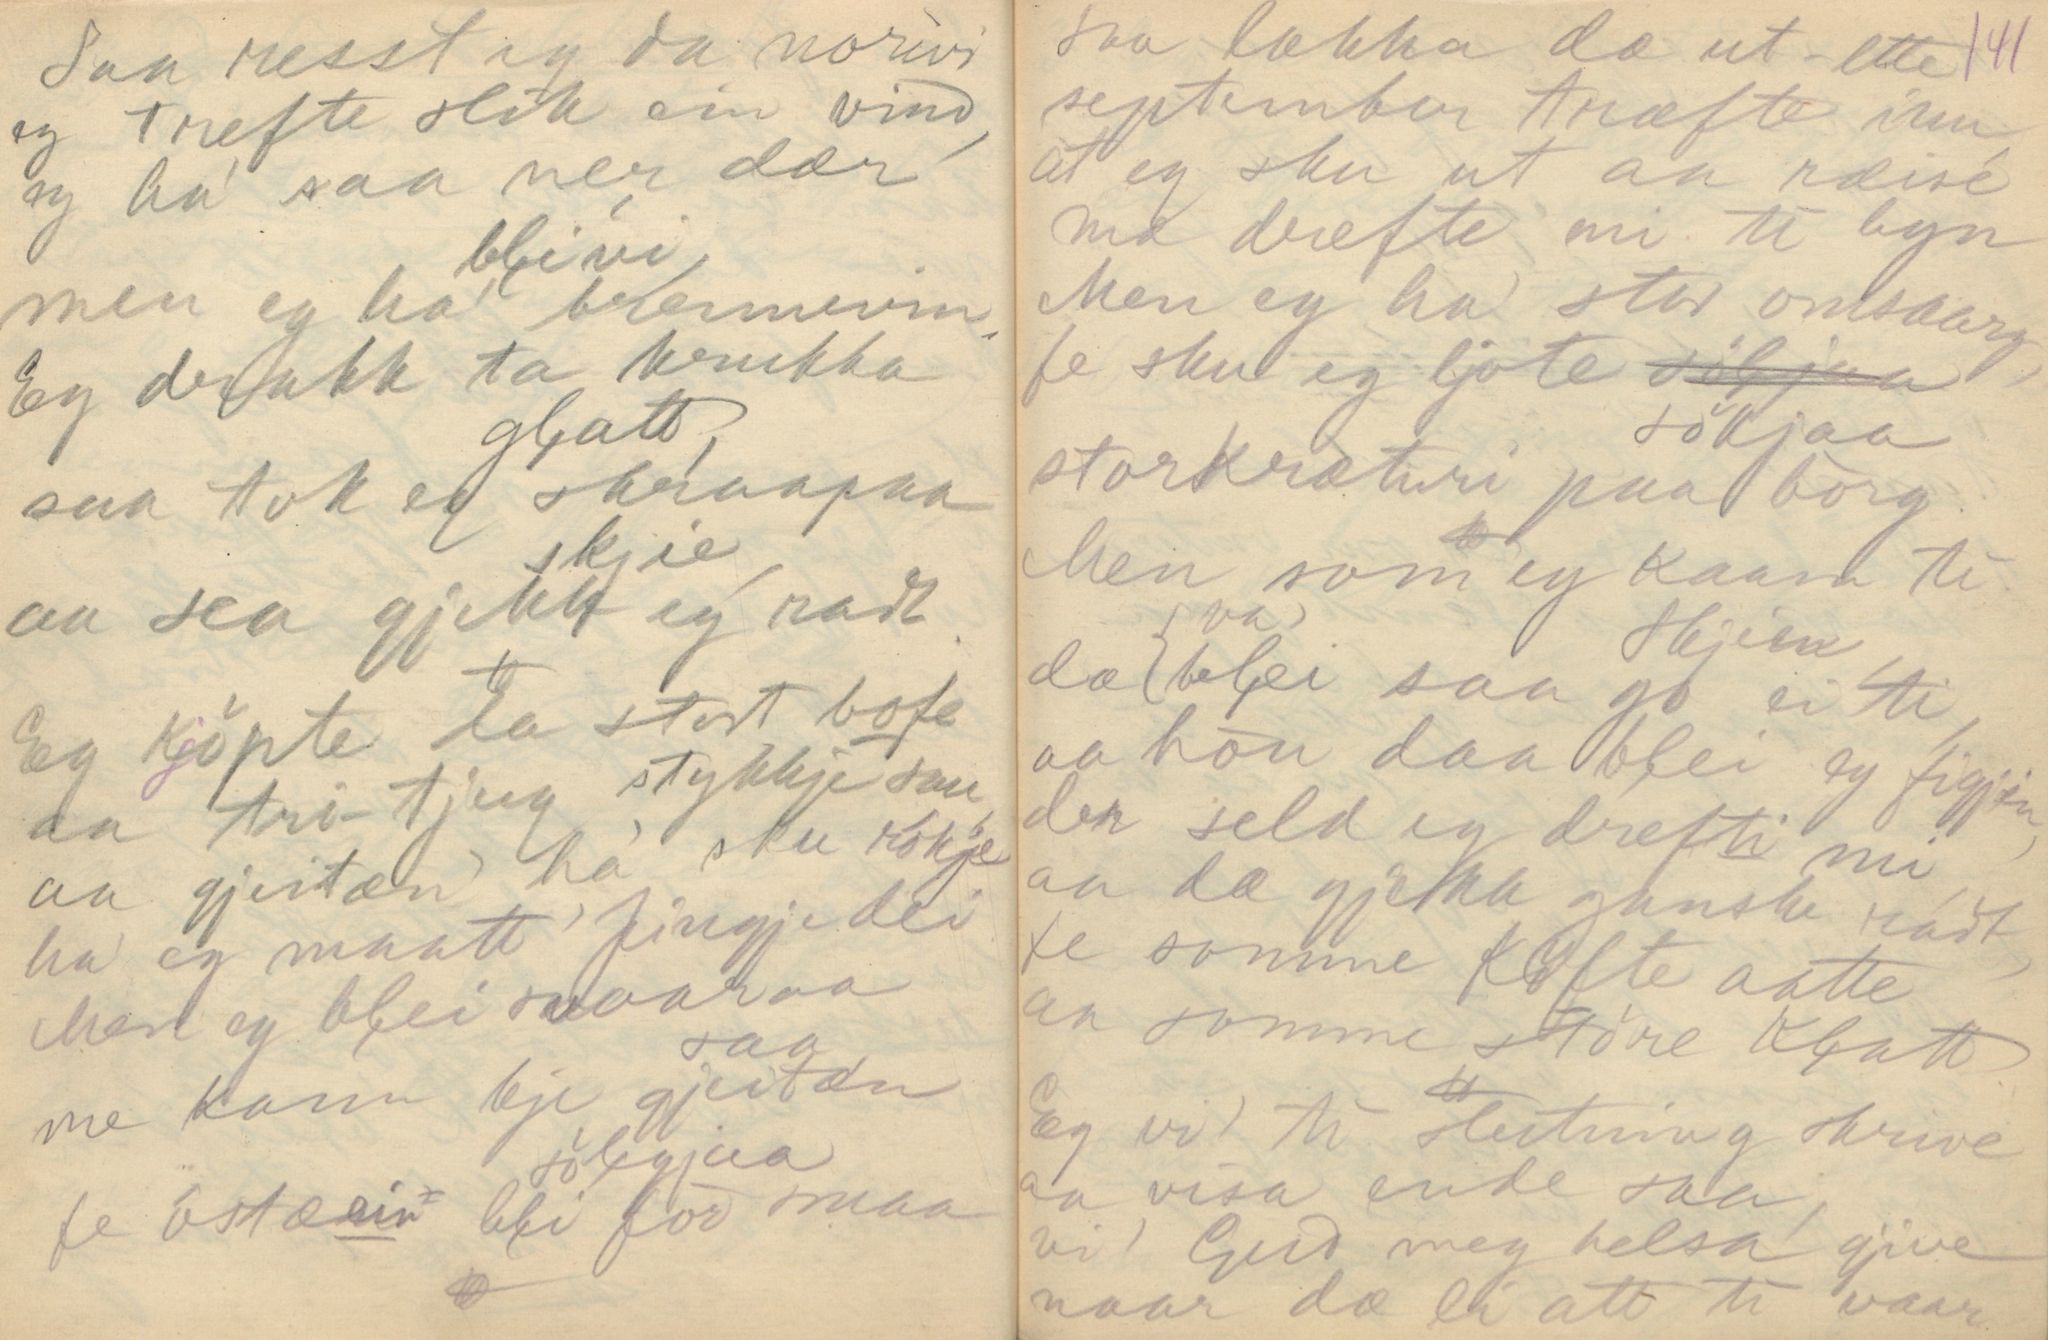 Saa resst eg da norivi
eg trefte slik ein vind,
eg ha' saa ner dær
blivi,
men eg ha' brennevin.
Eg drakk ta krukka
glatt,
saa tok eg skraapaa
skjie,
aa sea gjekk eg radt
Eg kjöpte ta stort bofe
aa tri-tjug stykkje sau,
aa gjeitæn' ha' sku rökje
ha' eg maatt' fingje dei
Men eg blei svaaraa
saa
me kann kje gjeitæn
sölgjaa
fe östæein blí for smaa
141
saa lakka dæ ut-ette
september træfte inn,
at eg sku ut aa ræise
mæ dræfte mi ti byn
Men eg ha' stor omsaarg,
fe sku eg ljote söljaa
sökjaa
storkræturi paa borg.
Men som eg kaam ti
Skjien,
va'
dæ blei saa go ei ti,
aa hòn daa blei eg figjen,
der seld eg drefti mi,
aa dæ gjekk ganske radt,
fe somme kjöfte aatte
aa somme störe klatt
Eg vi' ti slutning skrive
aa visa ende saa,
vi' Gud meg helsa gjive
naar dæ li att ti vaar